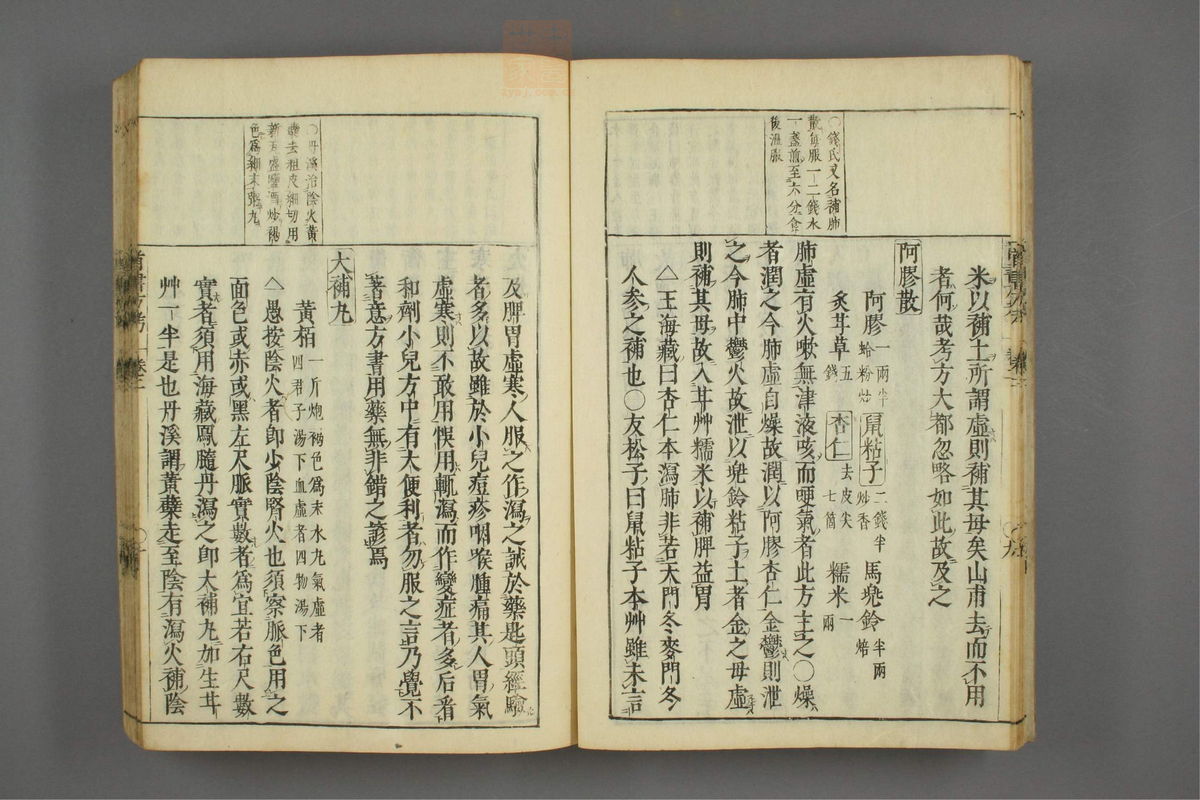 ○錢氏又名補肺
散每服一二錢水
一盞煎至六分食
後温服
米以補土所謂虛則補其母矣山甫去而不用
者何哉考方大都忽略如此故及之
阿膠散
阿膠一兩半蛤粉炒 鼠粘子二錢半炒香 馬兠鈴半兩焙
炙耳草五錢 杏仁去皮尖七箇 糯米一兩
肺虛有火嗽無津液咳而哽氣者此方主之○燥
者潤之今肺虛自燥故潤以阿膠杏仁金鬱則泄
之今肺中鬱火故泄以兠鈴粘子土者金之母虛
則補其母故入耳艸糯米以補脾益胃
△王海藏曰杏仁本瀉肺非若天門冬麥門冬
人參之補也○友松子曰鼠粘子本艸雖未言
○丹溪治陰火黃
蘗去粗皮細切用
新瓦盛鹽酒炒褐
色爲細末粥丸
及脾胃虛寒人服之作瀉之誡於藥匙頭經驗
者多以故雖於小兒痘疹咽喉腫痛其人胃氣
虛寒則不敢用悞用輒瀉而作變症者多后看
和劑小兒方中有大便利者勿服之言乃覺不
著意方書用藥無非錯之諺焉
大補丸
黃栢一斤炮褐色爲末水丸氣虛者四君子湯下血虛者四物湯下
△愚按陰火者卽少陰腎火也須察脈色用之
面色或赤或黑左尺脈實數者爲宜若右尺數
實者須用海藏鳳髓丹瀉之卽大補丸加生耳
艸一半是也丹溪謂黃蘗走至陰有瀉火補陰